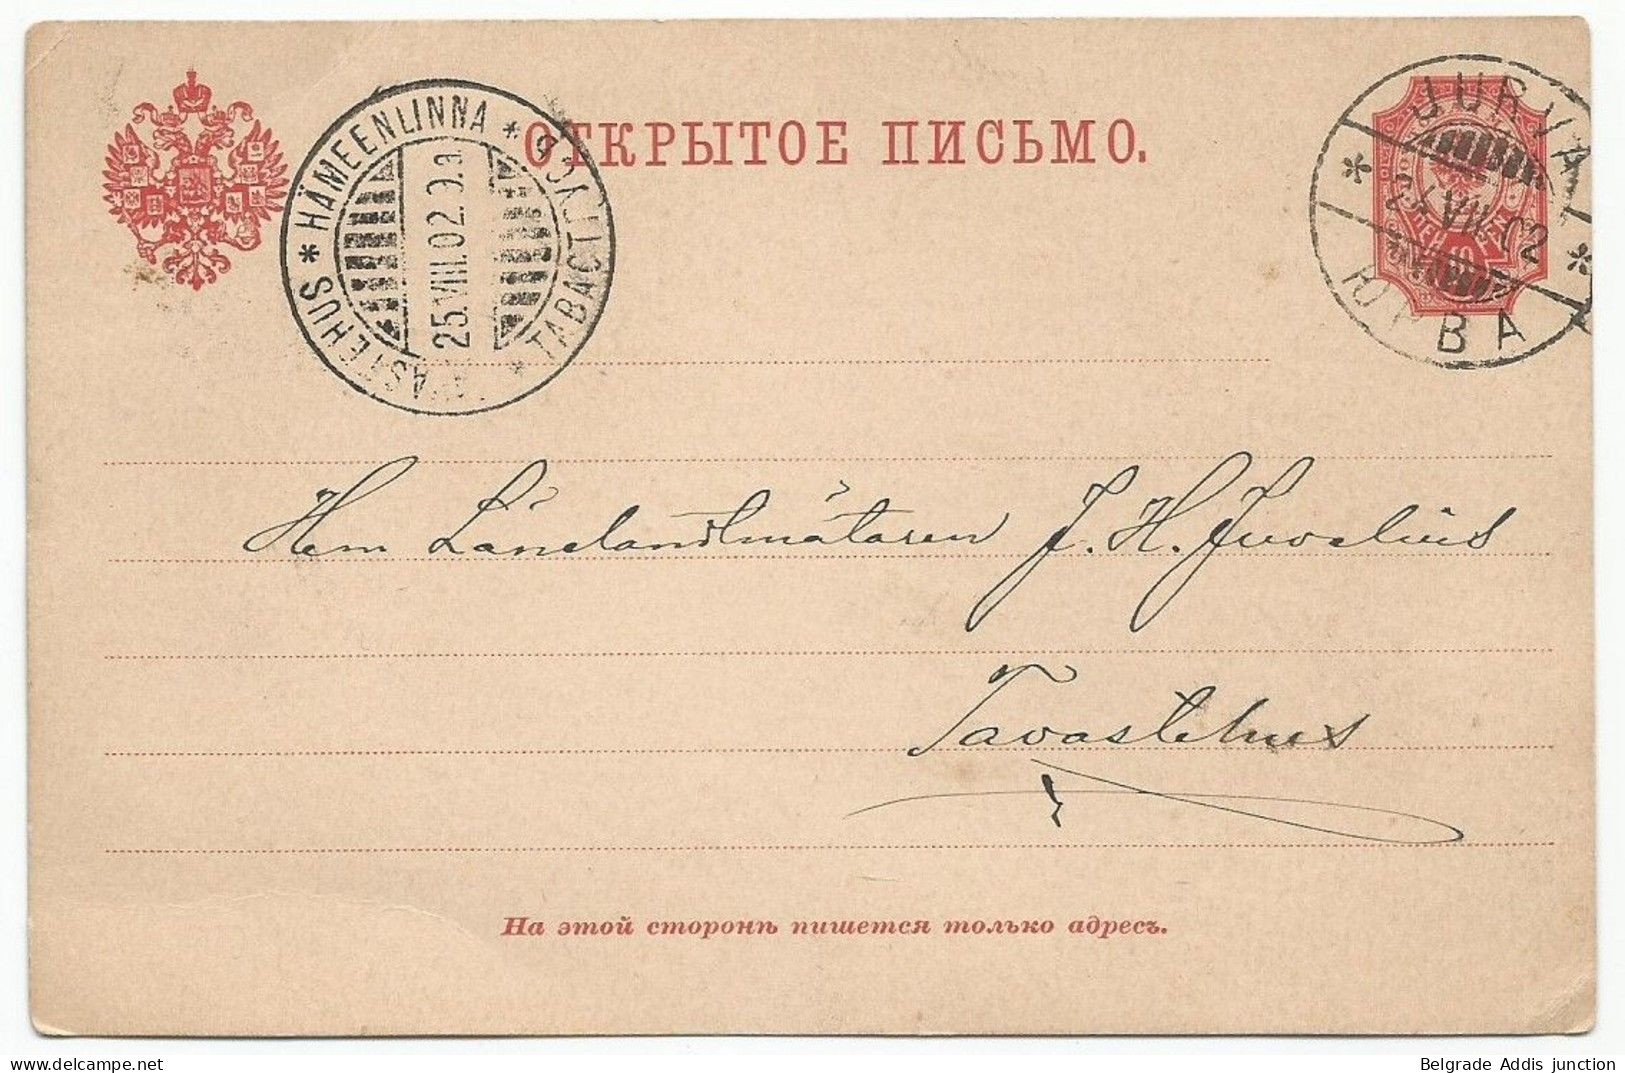 ОТКРЫТОЕ ПИСЬМО.
TAVASTEHUS * HÄMEENLINNA *
25.VIII.02.
JURVA
24.VIII.02
ЮРВА
Herr Länslandtmätaren J. H. Juvelius
Tavastehus
На этой сторонѣ пишется только адресъ.
delcampe.net
Belgrade Addis junction